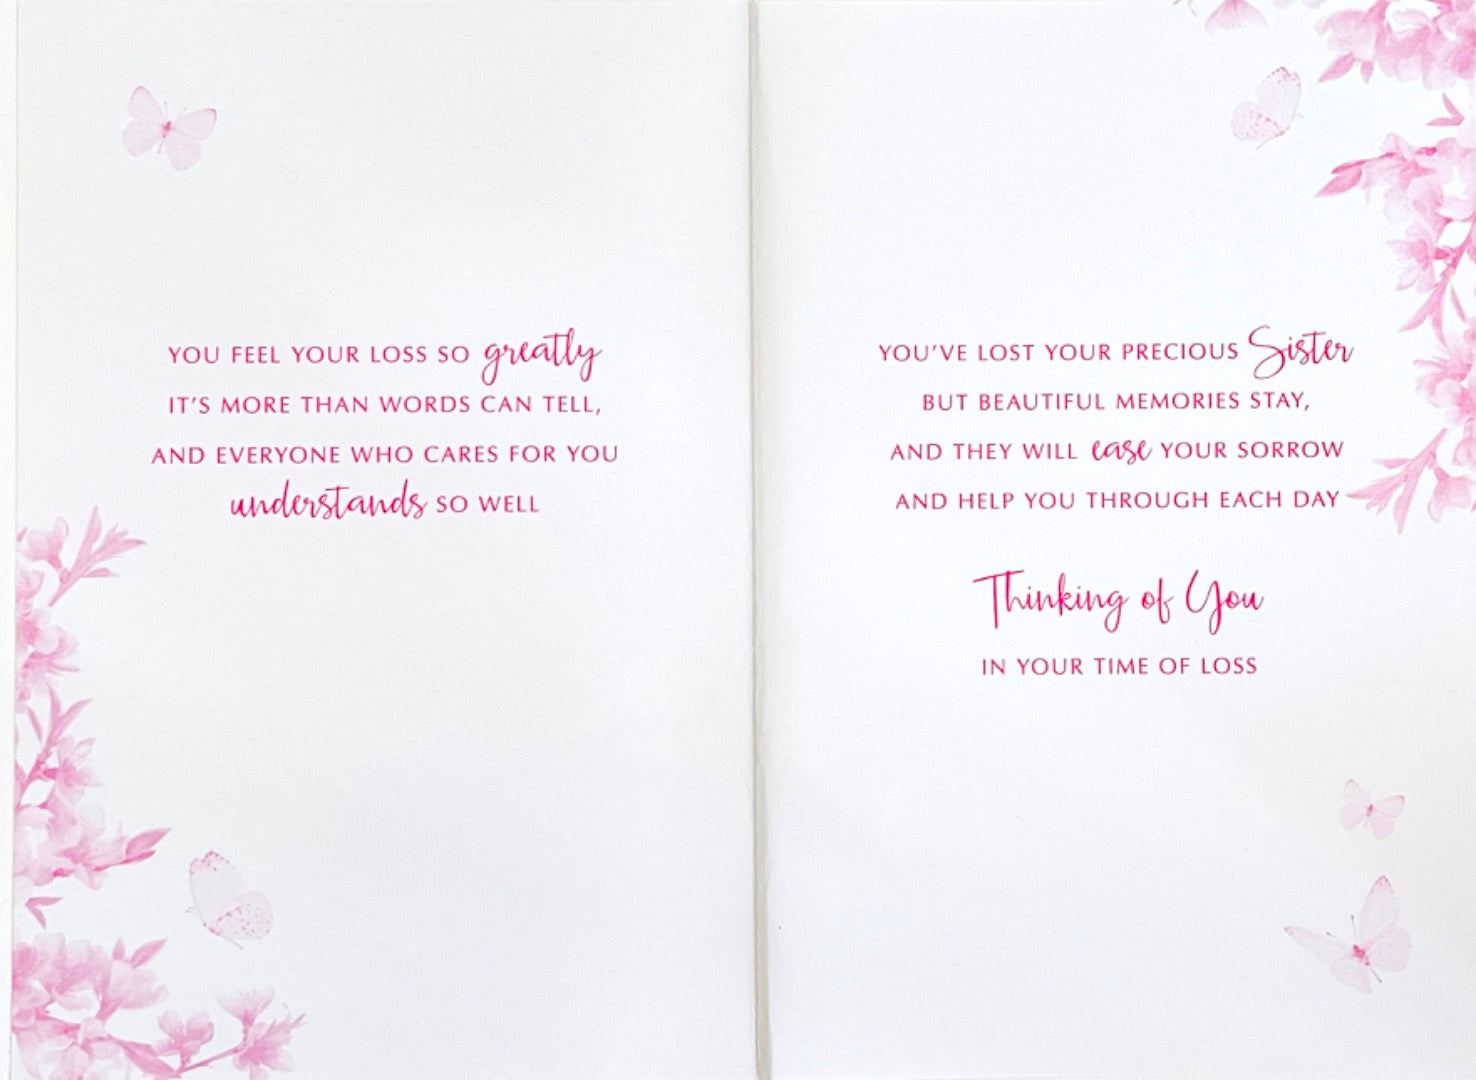 YOU FEEL YOUR LOSS SO greatly
IT'S MORE THAN WORDS CAN TELL,
AND EVERYONE WHO CARES FOR YOU
understands SO WELL
YOU'VE LOST YOUR PRECIOUS Sister
BUT BEAUTIFUL MEMORIES STAY,
AND THEY WILL ease YOUR SORROW
AND HELP YOU THROUGH EACH DAY
Thinking of You
IN YOUR TIME OF LOSS